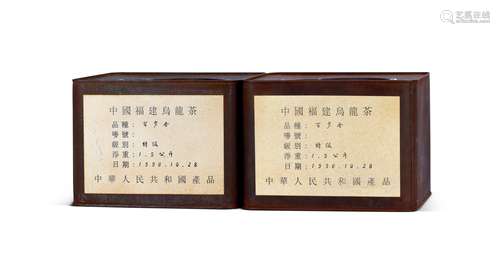 中國福建烏龍茶
品種：百步香
嘜號：
級別：特級
淨重：1.5公斤
日期：1990.10.28
中華人民共和國產品
中國福建烏龍茶
品種：百步香
嘜號：
級別：特級
淨重：1.5公斤
日期：1990.10.28
中華人民共和國產品